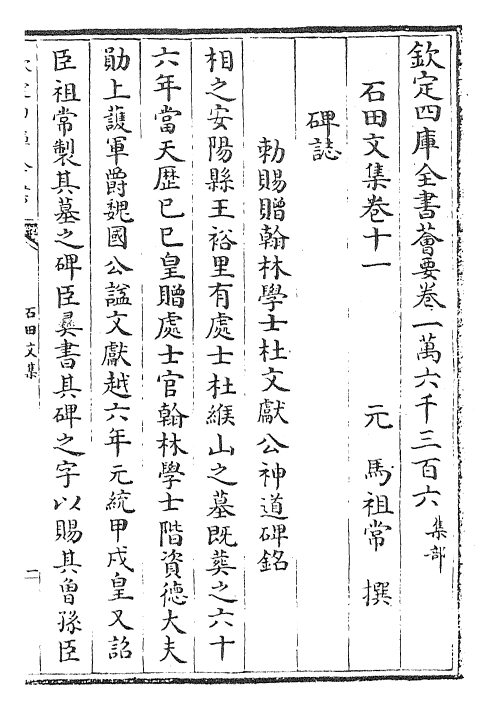 欽定四庫全書薈要卷一萬六千三百六 集部
石田文集卷十一 元 馬祖常 撰
碑誌
勅賜贈翰林學士杜文獻公神道碑銘
相之安陽縣王裕里有處士杜緱山之墓既葬之六十
六年當天歷已巳皇贈處士官翰林學士階資德大夫
勛上護軍爵魏國公諡文獻越六年元統甲戌皇又詔
臣祖常製其墓之碑臣彛書其碑之字以賜其曾孫臣
石田文集
一